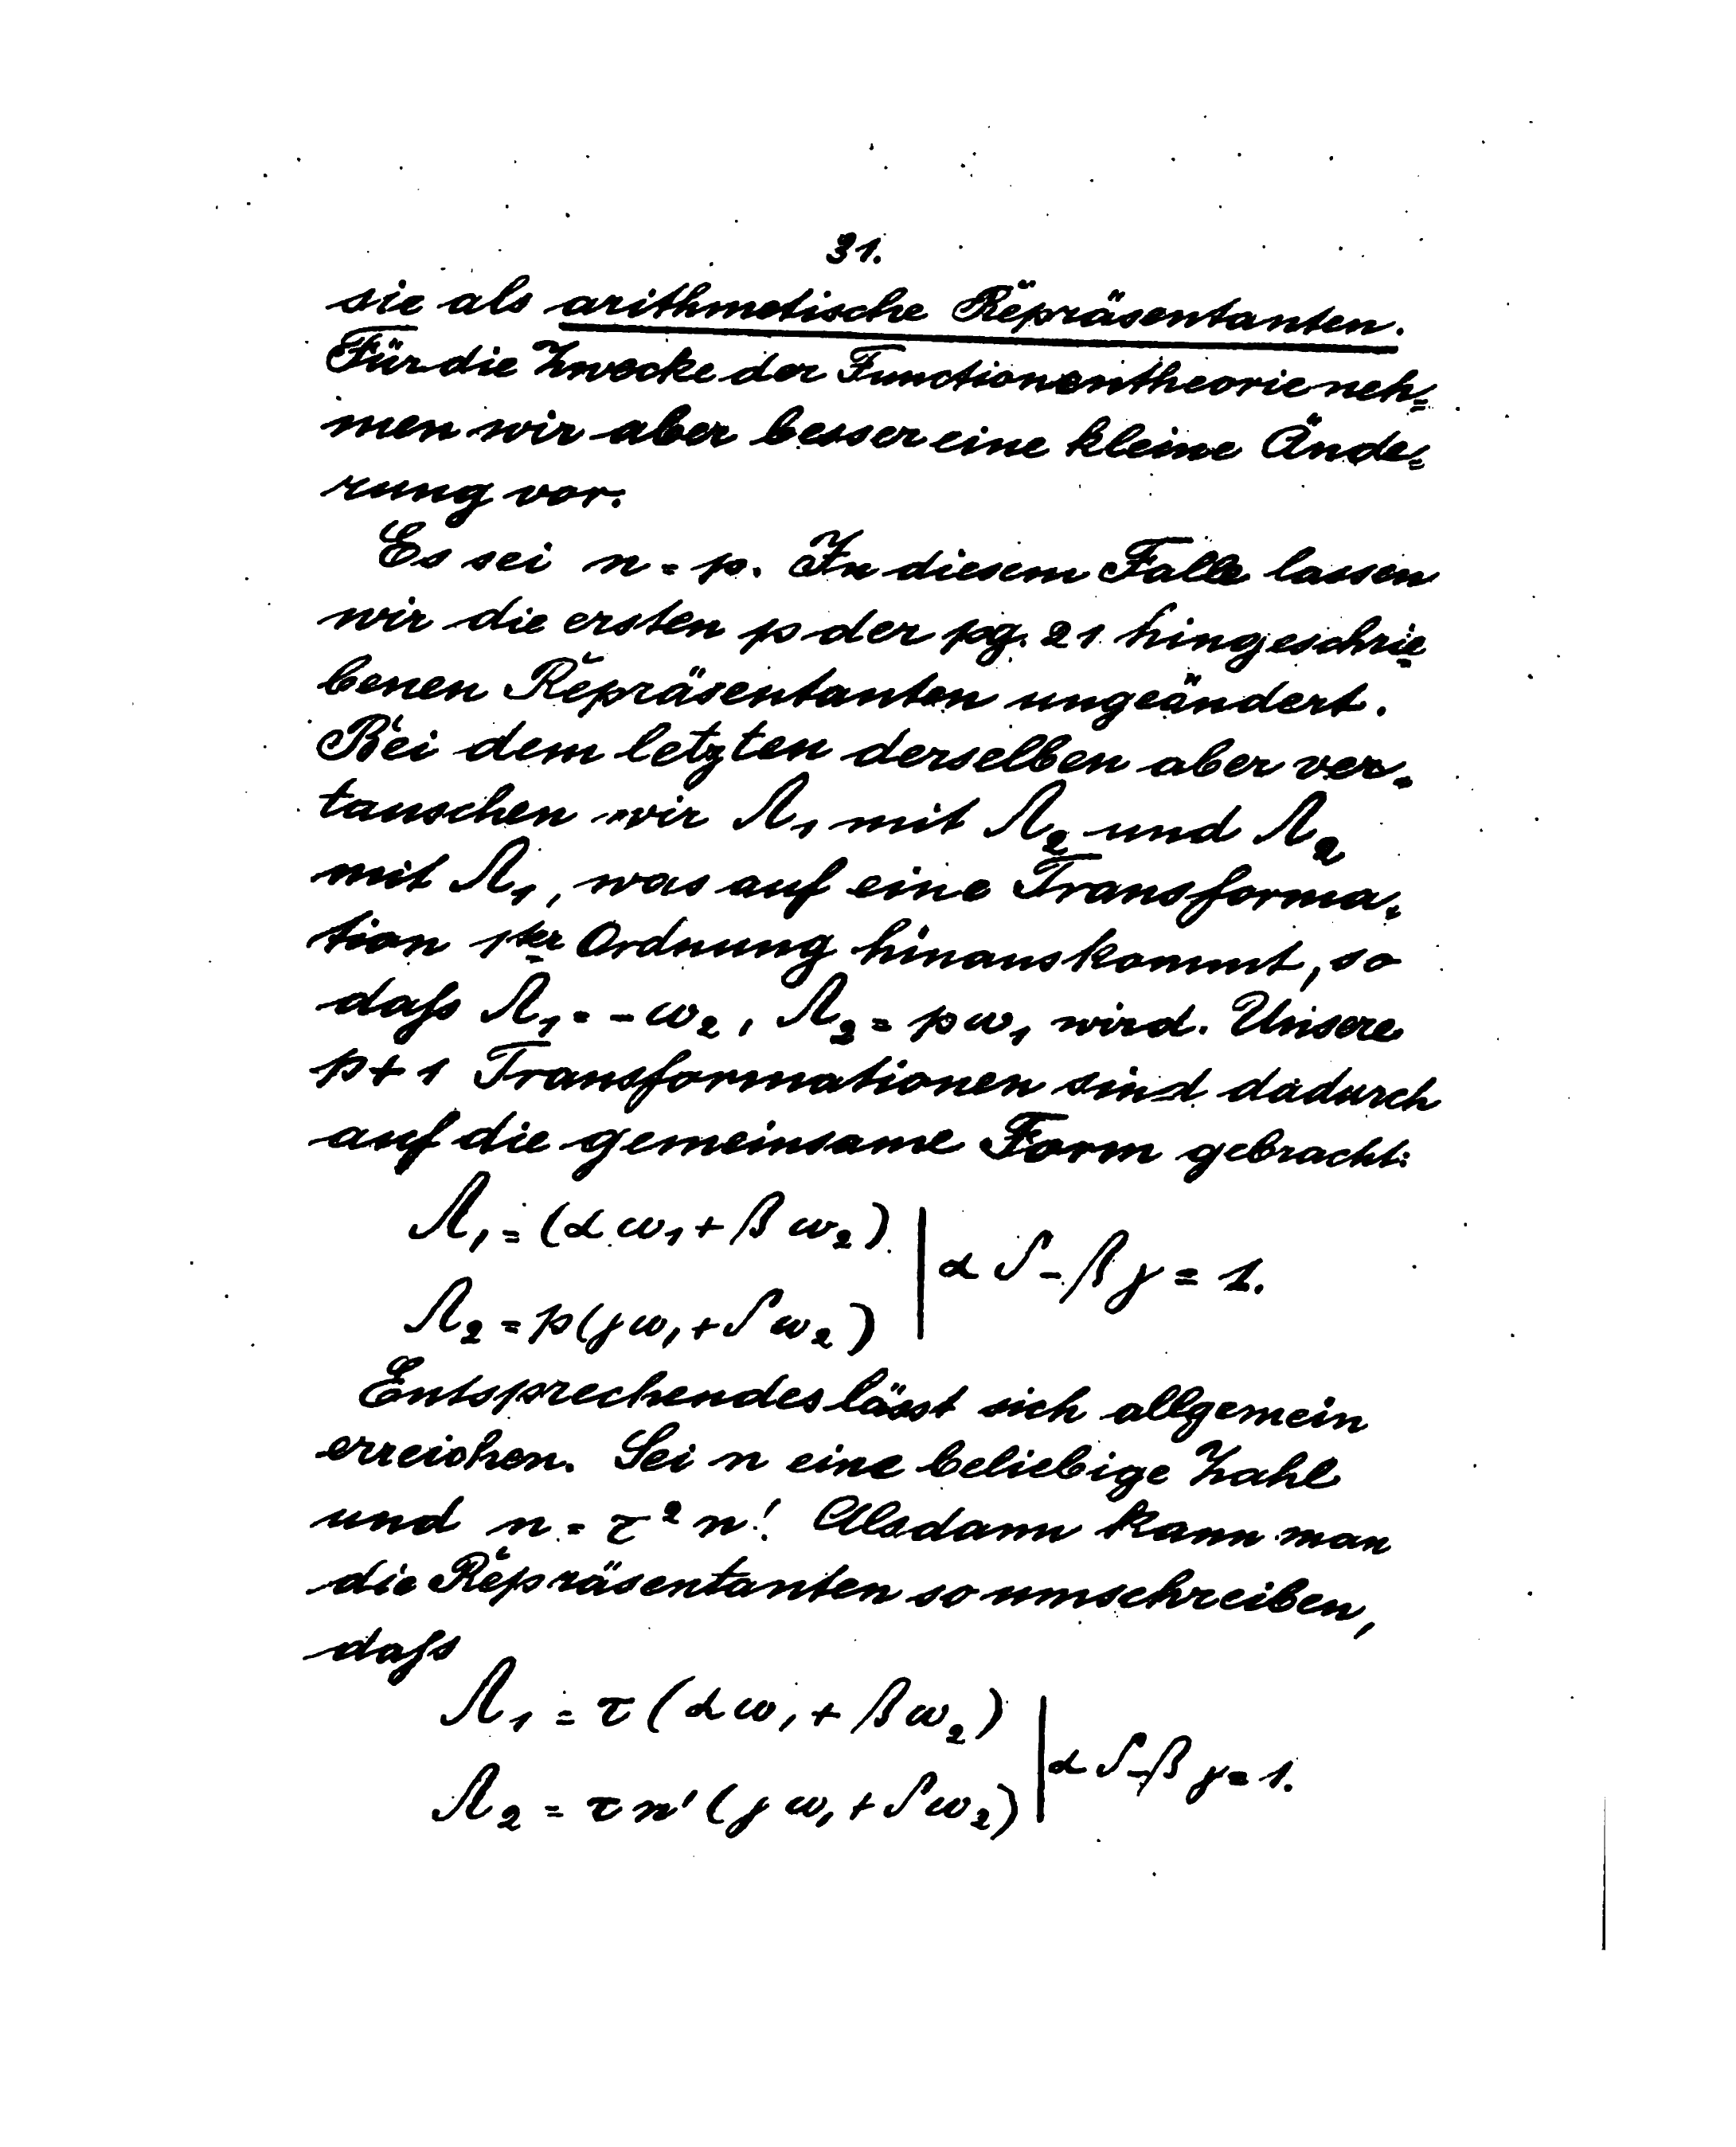 31.
sie als arithmetische Repräsentanten.
Für die Zwecke der Functionentheorie neh=
men wir aber besser eine kleine Ände=
rung vor.
Es sei n = p. In diesem Falle lassen
wir die ersten p der pg. 21 hingeschrie=
benen Repräsentanten ungeändert.
Bei dem letzten derselben aber ver=
tauschen wir Λ₁ mit Λ₂ und Λ₂
mit Λ₁, was auf eine Transforma=
tion 1ter Ordnung hinauskommt, so
daſs Λ₁ = -ω₂, Λ₂ = pω₁ wird. Unsere
p+1 Transformationen sind dadurch
auf die gemeinsame Form gebracht:
Λ₁ = (αω₁ + βω₂) | αδ - βγ = 1.
Λ₂ = p(γω₁ + δω₂)
Entsprechendes lässt sich allgemein
erreichen. Sei n eine beliebige Zahl
und n = τ²n'. Alsdann kann man
die Repräsentanten so umschreiben,
daſs
Λ₁ = τ(αω₁ + βω₂) | αδ - βγ = 1.
Λ₂ = τn'(γω₁ + δω₂)